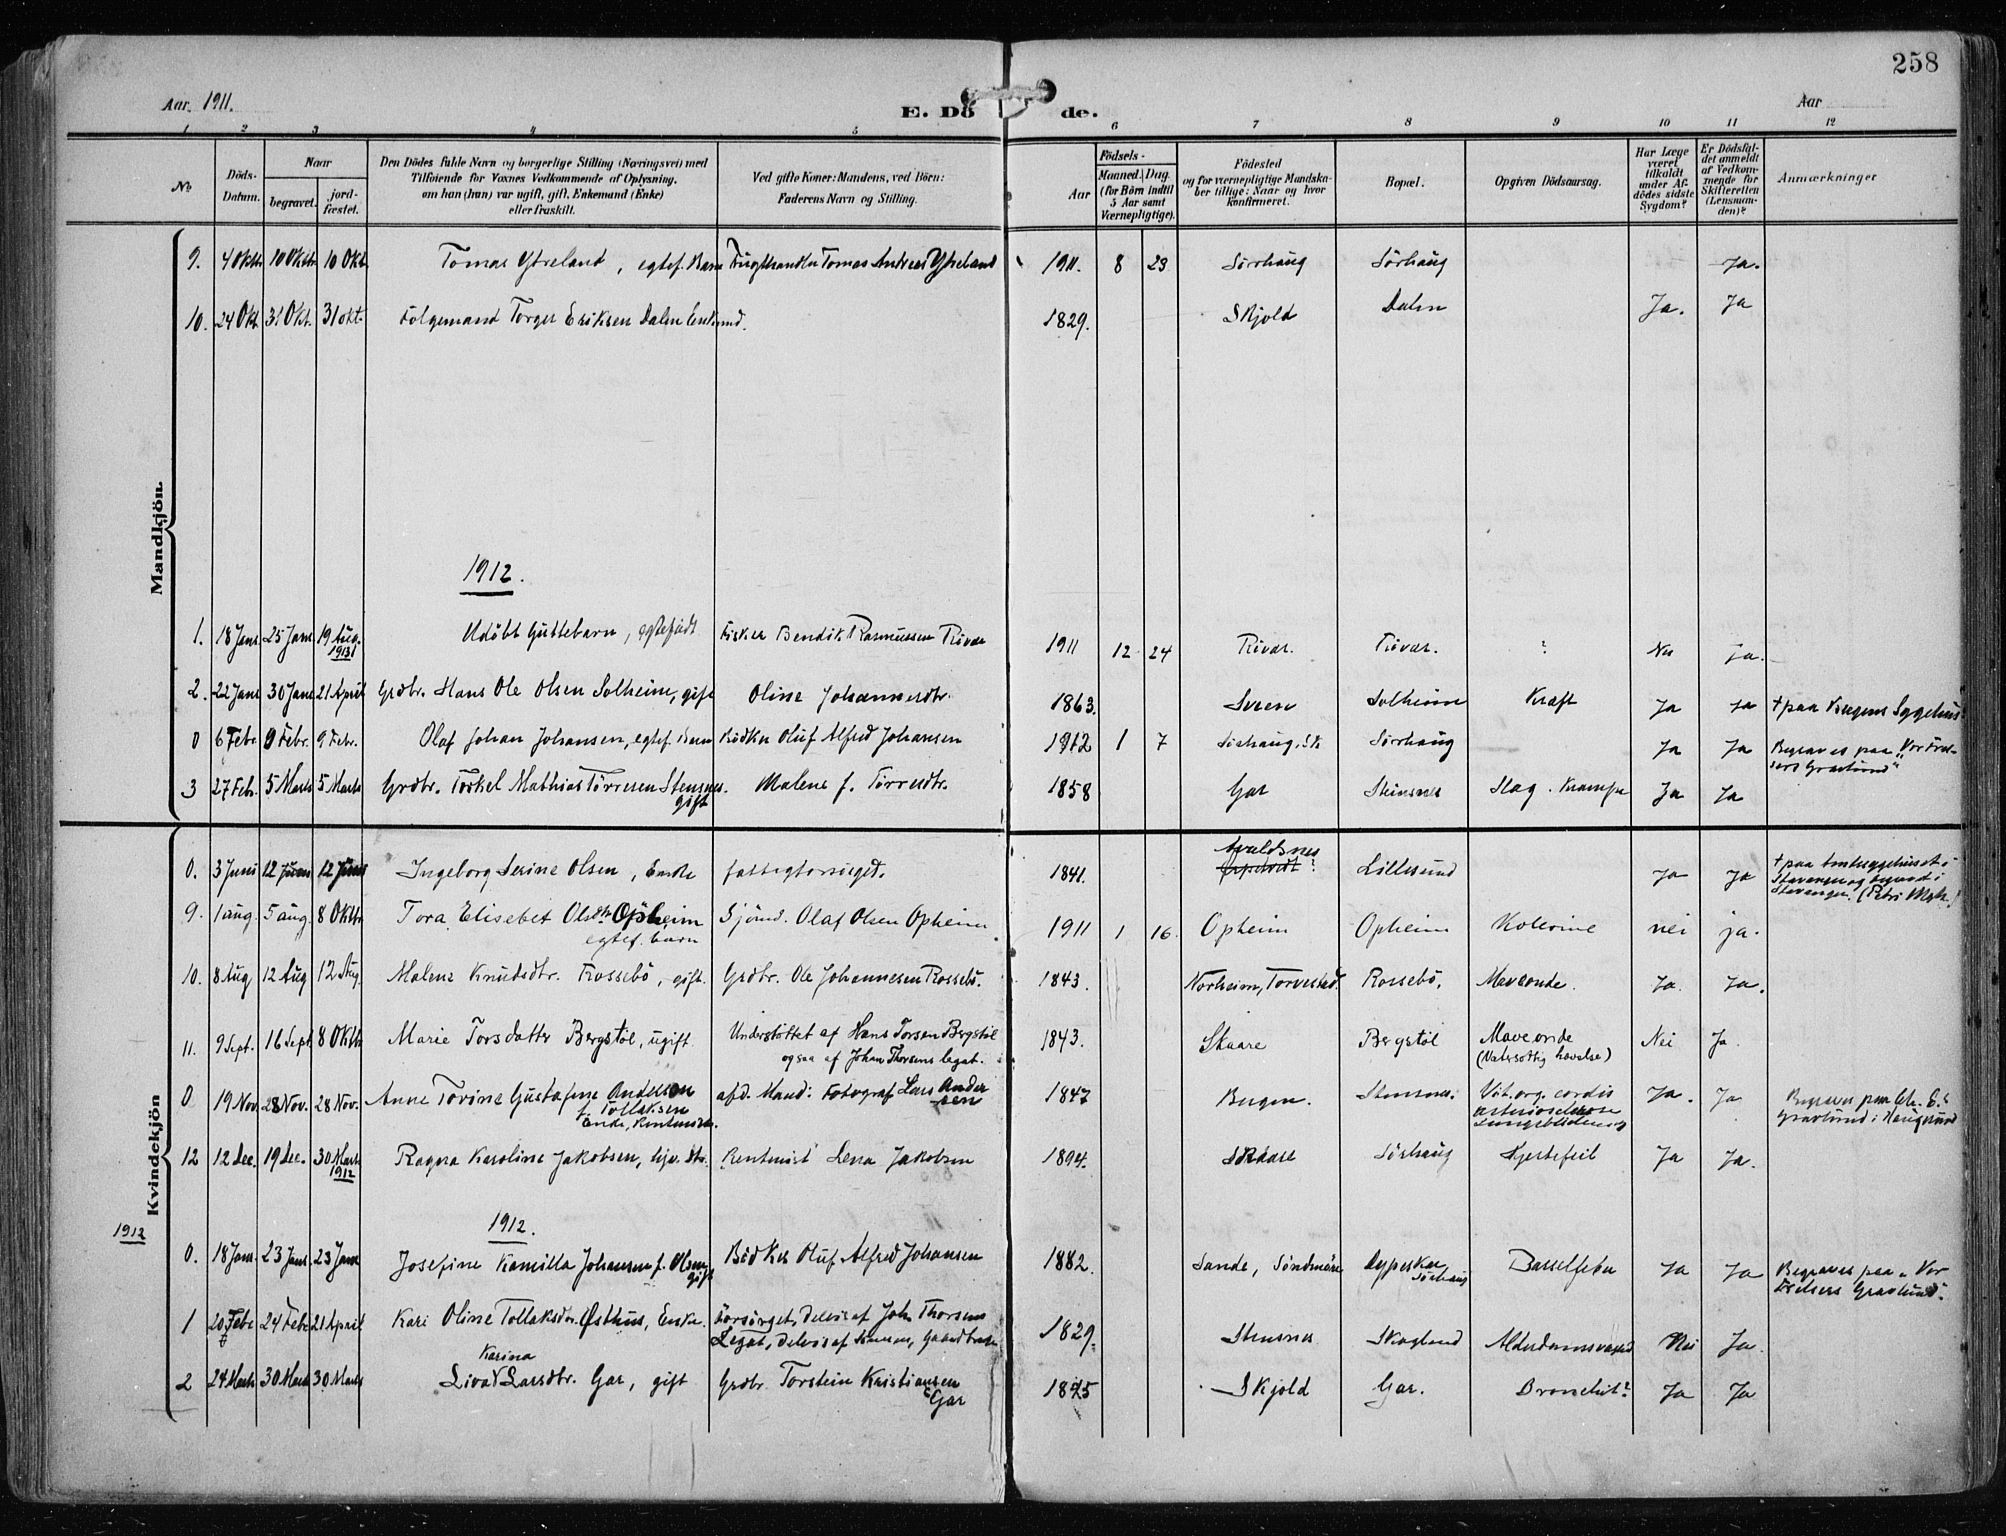 258
Aar 1911.
E. Dö de.
Aar
1 2 3 4 5 6 7 8 9 10 11 12
No
Döds-Datum.
Naar
begravet.
jord-fæstet.
Den Dödes fulde Navn og borgerlige Stilling (Næringsvei) med
Tilföiende for Voxnes Vedkommende af Oplysning,
om han (hun) var ugift, gift, Enkemand (Enke)
eller fraskilt.
Ved gifte Koner: Mandens, ved Börn:
Faderens Navn og Stilling.
Födsels-
Aar
Maaned. Dag
(for Börn indtil
5 Aar samt
Værnepligtige).
Födested
og for værnepligtige Mandska-
ber tillige: Naar og hvor
konfirmeret.
Bopæl.
Opgiven Dödsaarsag.
Har Læge
været
tilkaldt
under Af-
dödes sidste
Sygdom?
Er Dödsfal-
det anmeldt
af Vedkom-
mende for
Skifteretten
(Lensman-
den)?
Anmærkninger
Mandkjön.
9. 4 Oktb 10 Oktb 10 Okt Tomas Ytreland, egtef. Barn Frugthandler Tomas Andreas Ytreland 1911. 8 23 Sörhaug Sörhaug Ja.
10. 24 Okt. 31 Okt. 31 okt. Folgemand Torger Eriksen Dalen Enkemd. 1829. Skjold Dalen Ja. Ja
1912.
1. 18 Jan. 25 Jan. 19 Aug. 1913 Udöbt Guttebarn, egtefödt Fisker Bendik Rasmussen Rivær 1911 12 24 Rivær. Rivær. ? Nei ja.
2. 22 Jan. 30 Jan. 21 April Grdbr. Hans Ole Olsen Solheim, gift Oline Johannesdtr. 1863. Sveen Solheim Kræft Ja Ja + paa Bergens Sygehus
0 6 Febr. 9 Febr. 9 Febr. Olaf Johan Johansen, egtef. Barn Bödker Oluf Alfred Johansen 1912 1 7 Sörhaug, Sk. Sörhaug Ja Ja Begraves paa "Vor Frel-
sers Gravlund"
3 27 Febr. 5 Marts 5 Marts Grdbr. Torkel Mathias Törresen Stensnes. gift Malene f. Törresdtr. 1858 Gar Steinsnes Slag. Krampe Ja Ja
Kvindekjön
0. 3 Juni 12 Juni 12 Juni Ingeborg Serine Olsen, Enke fattigforsörget. 1841. Avaldsnes ? Lillesund Ja Ja + paa Amtssygehuset i
Stavanger og begravet i
Stavanger. (Petri Mgh.)
9. 1 aug. 5 aug. 8 Oktb Tora Elisebet Olsdtr Opheim
egtef. barn Sjömd. Olaf Olsen Opheim 1911 1 16. Opheim Opheim Kolerine nei ja.
10. 8 Aug 12 Aug 12 Aug. Malene Knudsdtr. Rossebö, gift. Grdbr. Ole Johannesen Rossebö. 1843. Norheim, Torvestad. Rossebö, Maveonde. Ja. Ja.
11. 9 Sept. 16 Sept 8 Oktb Marie Torsdatter Bergstöl, ugift. Understöttet af Hans Torsen Bergstöl
ogsaa af Johan Thorsens legat. 1843. Skaare Bergstöl Maveonde
(Vatersottig hævelse) Nei Ja.
0 19 Nov. 28 Nov. 28 Nov. Anne Torine Gustafine Andersen
f. Tollaksen
Enke, Rentenist. afd. Mand: Fotograf Lars Ander-
sen 1847 Bergen. Stensnes. Vit. org. cordis
arteriosclerose Ja. Ja. Begraves paa
Gravlund i Haugesund
12 12 Dec. 19 Dec. 30 Marts 1912 Ragna Karoline Jakobsen, hjv. dtr. Rentenist Lena Jakobsen 1894. Skaare Sörhaug Hjertefeil Ja Ja.
1912 1912.
0. 18 Jan. 23 Jan. 23 Jan Josefine Kamilla Johansen f. Olsen, gift Bödker Oluf Alfred Johansen 1882. Sande, Söndmöre Sörhaug Barselfeber Ja Ja Begraves paa "Vor
Frelsers Gravlund".
1 20 Febr 24 Febr 21 April Kari Oline Tollaksdtr. Østhus, Enke. Forsörget, Delvis af Joh. Thorsens
Legat, Delvis af 1829. Stensnes Skoglund Alderdomssvaghed Nei Ja.
Karina
2 24 Marts 30 Marts 30 Marts Liva Larsdtr. Gar, gift Grdbr. Torstein Kristiansen
Gar 1845 Skjold Gar. Bronchit? Ja Ja